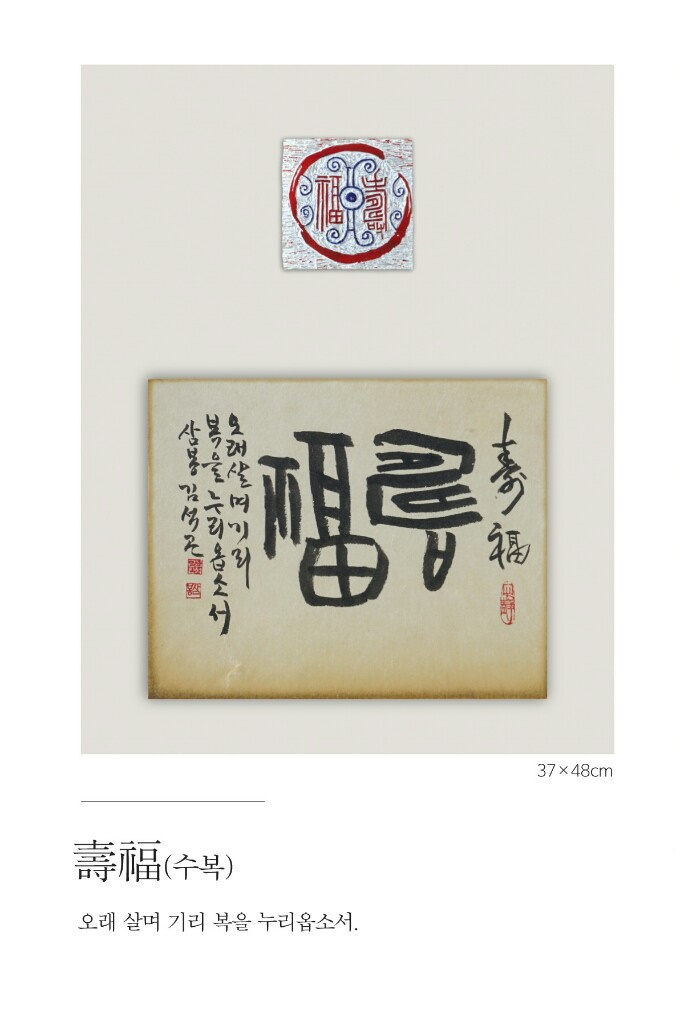 福壽
壽福
壽福
오래 살며 기리
복을 누리옵소서
삼봉 김석곤
37×48cm
壽福(수복)
오래 살며 기리 복을 누리옵소서.